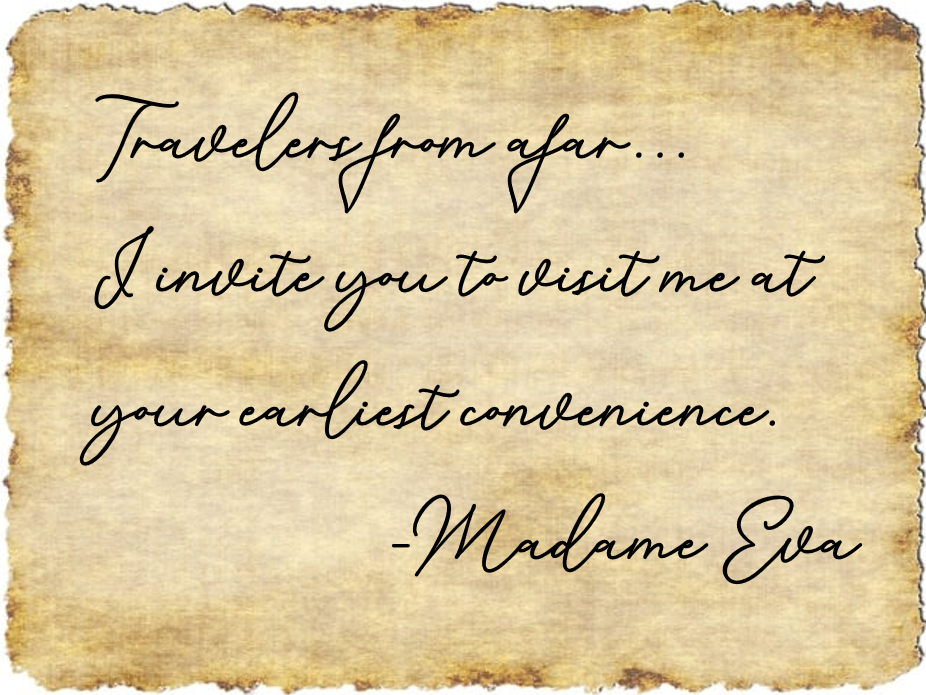 Travelers from afar...
I invite you to visit me at
your earliest convenience.
-Madame Eva